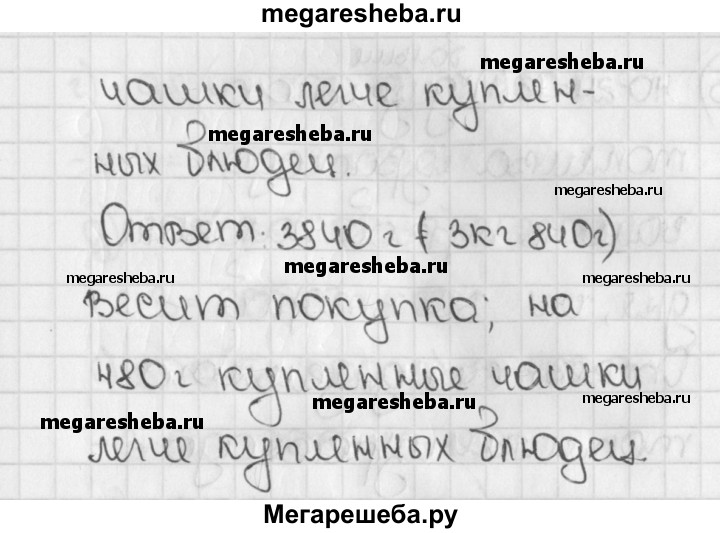 megaresheba.ru
megaresheba.ru
чашки легче куплен-
megaresheba.ru
ных блюдец.
megaresheba.ru
Ответ: 3840 г (3кг 840г)
megaresheba.ru
megaresheba.ru
megaresheba.ru
весит покупка; на
480 г купленные чашки
megaresheba.ru
megaresheba.ru
megaresheba.ru
легче купленных блюдец.
Мегарешеба.ру